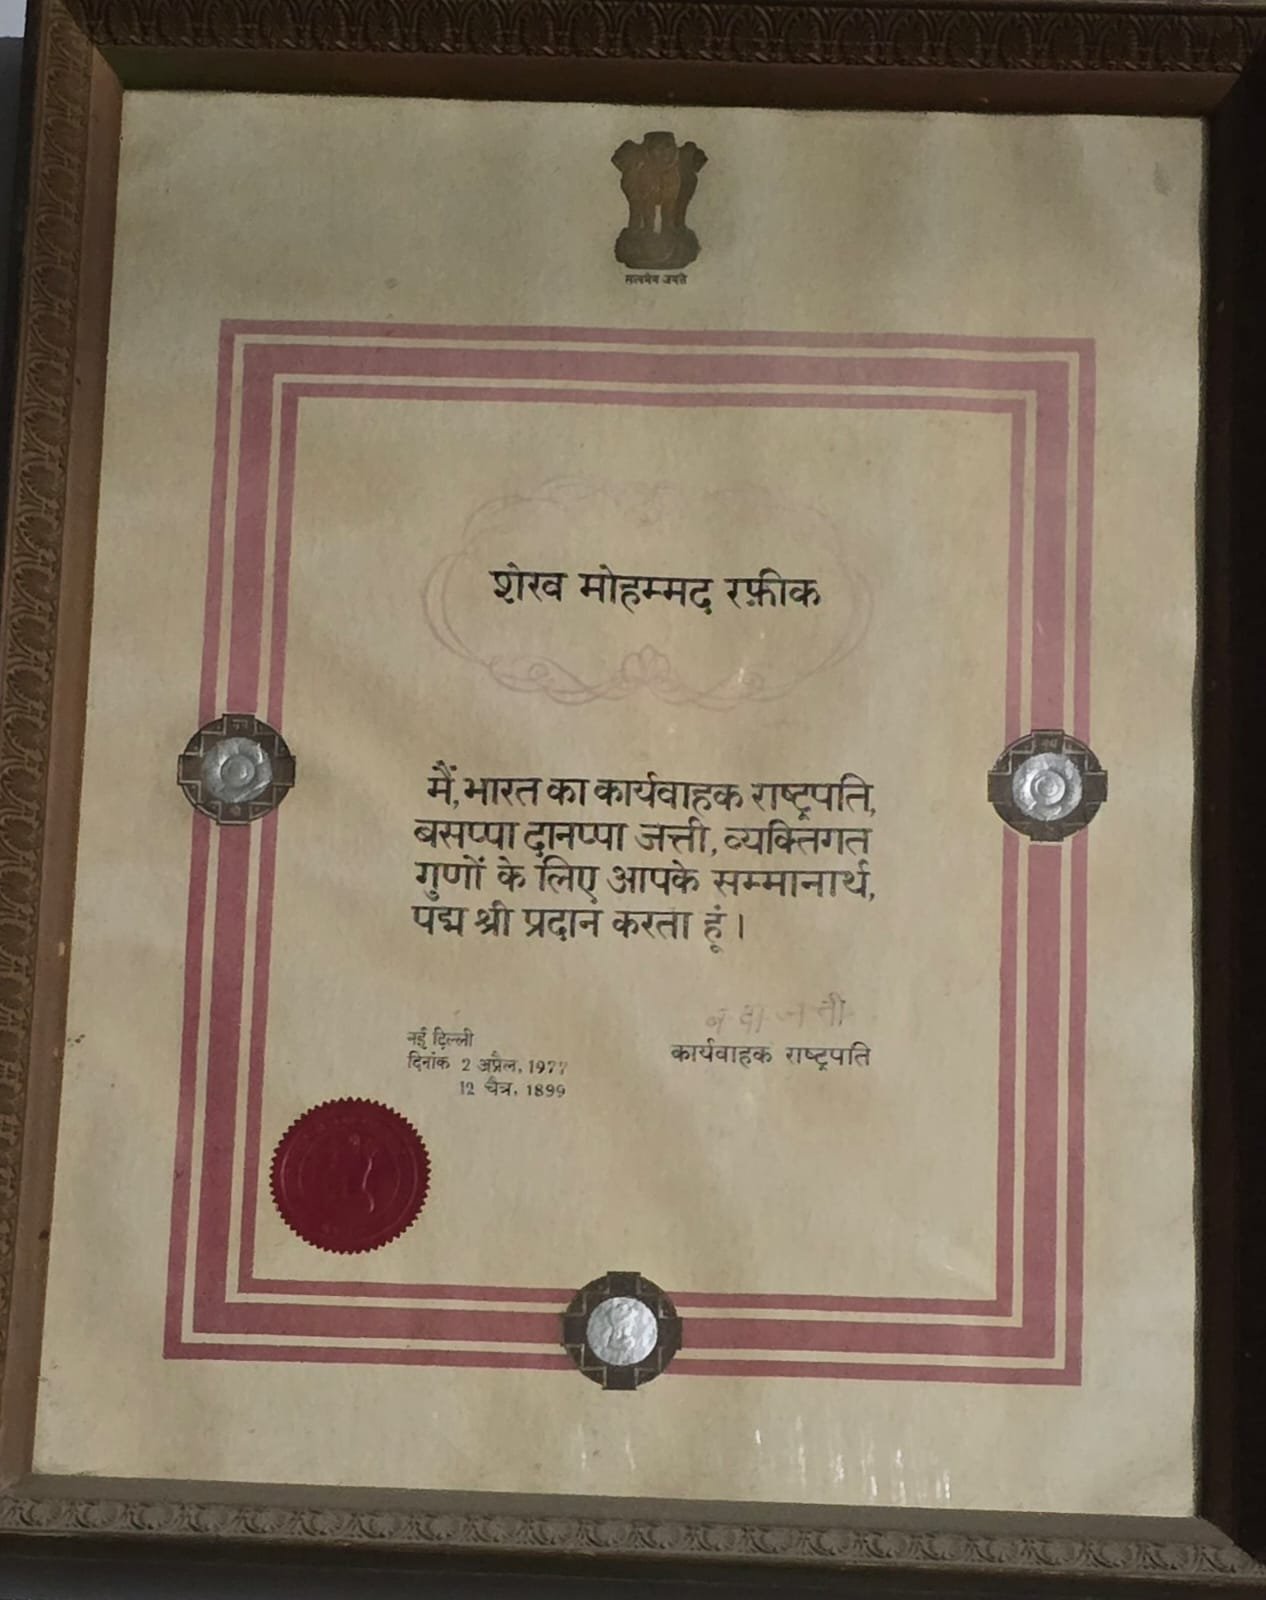 सत्यमेव जयते
शेख मोहम्मद रफ़ीक
मैं, भारत का कार्यवाहक राष्ट्रपति,
बसप्पा दानप्पा जत्ती, व्यक्तिगत
गुणों के लिए आपके सम्मानार्थ,
पद्म श्री प्रदान करता हूं।
ब दा जत्ती
नई दिल्ली
कार्यवाहक राष्ट्रपति
दिनांक 2 अप्रैल, 1977
12 चैत्र, 1899